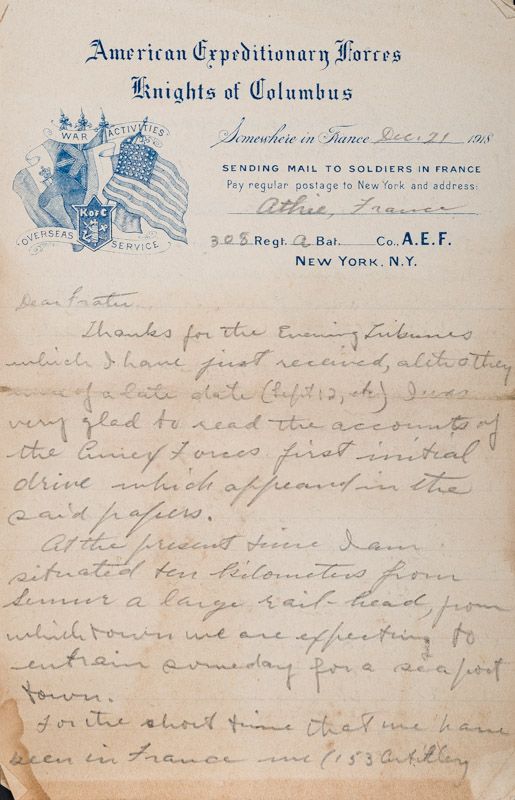 American Expeditionary Forces
Knights of Columbus
WAR ACTIVITIES
K of C
OVERSEAS SERVICE
Somewhere in France Dec. 21 1918
SENDING MAIL TO SOLDIERS IN FRANCE
Pay regular postage to New York and address:
Athie, France
308 Regt. A Bat. Co., A.E.F.
NEW YORK, N.Y.
Dear Frater
Thanks for the Evening Tribunes
which I have just received, altho they
of a late date (Sept 12, etc) I was
very glad to read the accounts of
the Forces first initial
drive which appeard in the
said papers.
At the present time I am
situated ten kilometers from
Semur a large rail-head, from
which town we are expecting to
entrain someday for a seaport
town.
For the short time that we have
been in France we (153 Artillery